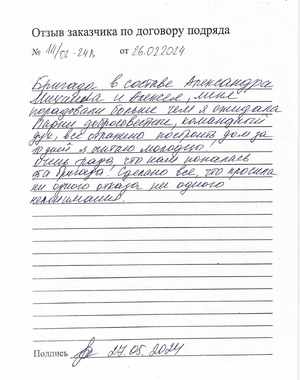 Отзыв заказчика по договору подряда
№ 111/02-24д от 26.02.2024
Бригада в составе Александра
Михаила и Алексея, меня
порадовали больше чем я ожидала
Парни добросовестные, командный
дух, все слаженно построить дом за
дней я считаю молодцы!
Очень рада, что нам попалась
эта бригада! Сделано все, что просила
ни одного отказа, ни одного
непонимания.
Подпись 27.05.2024